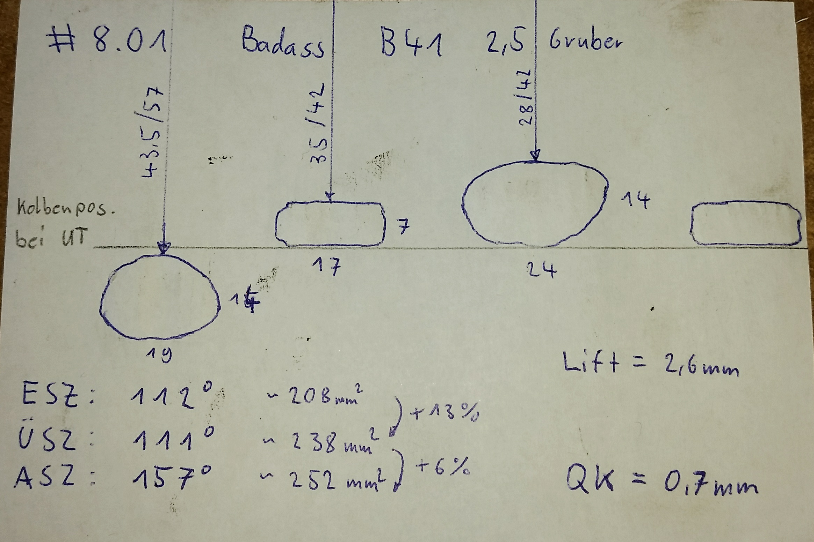 # 8.01 Badass B41 2,5 Gruber
43,5/57
35/42
28/42
Kolbenpos.
bei UT
7
14
17
24
19
Lift = 2,6mm
ESZ: 112° ~ 208mm²
+13%
ÜSZ: 111° ~ 238mm²
+6%
ASZ: 157° ~ 252mm²
QK = 0,7mm